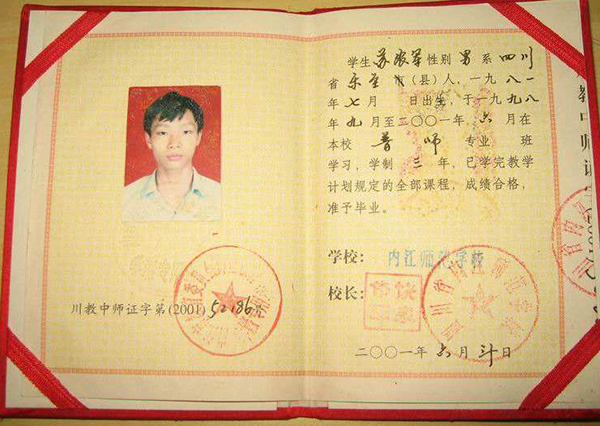 川教中师证字第(2001)52186号
学生苏农军性别男系四川
省乐至市(县)人,一九八一
年七月 日出生,于一九九八
年九月至二〇〇一年六月在
本校普师专业 班
学习,学制三年,已学完教学
计划规定的全部课程,成绩合格,
准予毕业。
学校:内江师范学校
校长:
二〇〇一年六月 日
教中师证